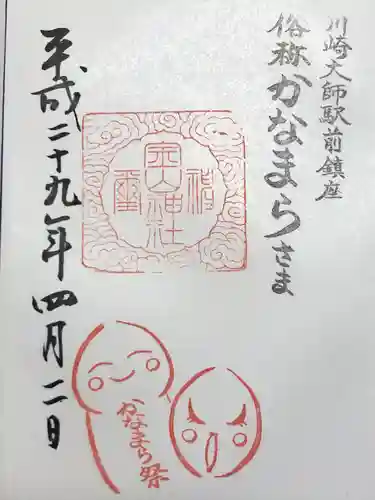 川崎大師駅前鎮座
俗称かなまらさま
金山神社
かなまら祭
平成二十九年四月二日